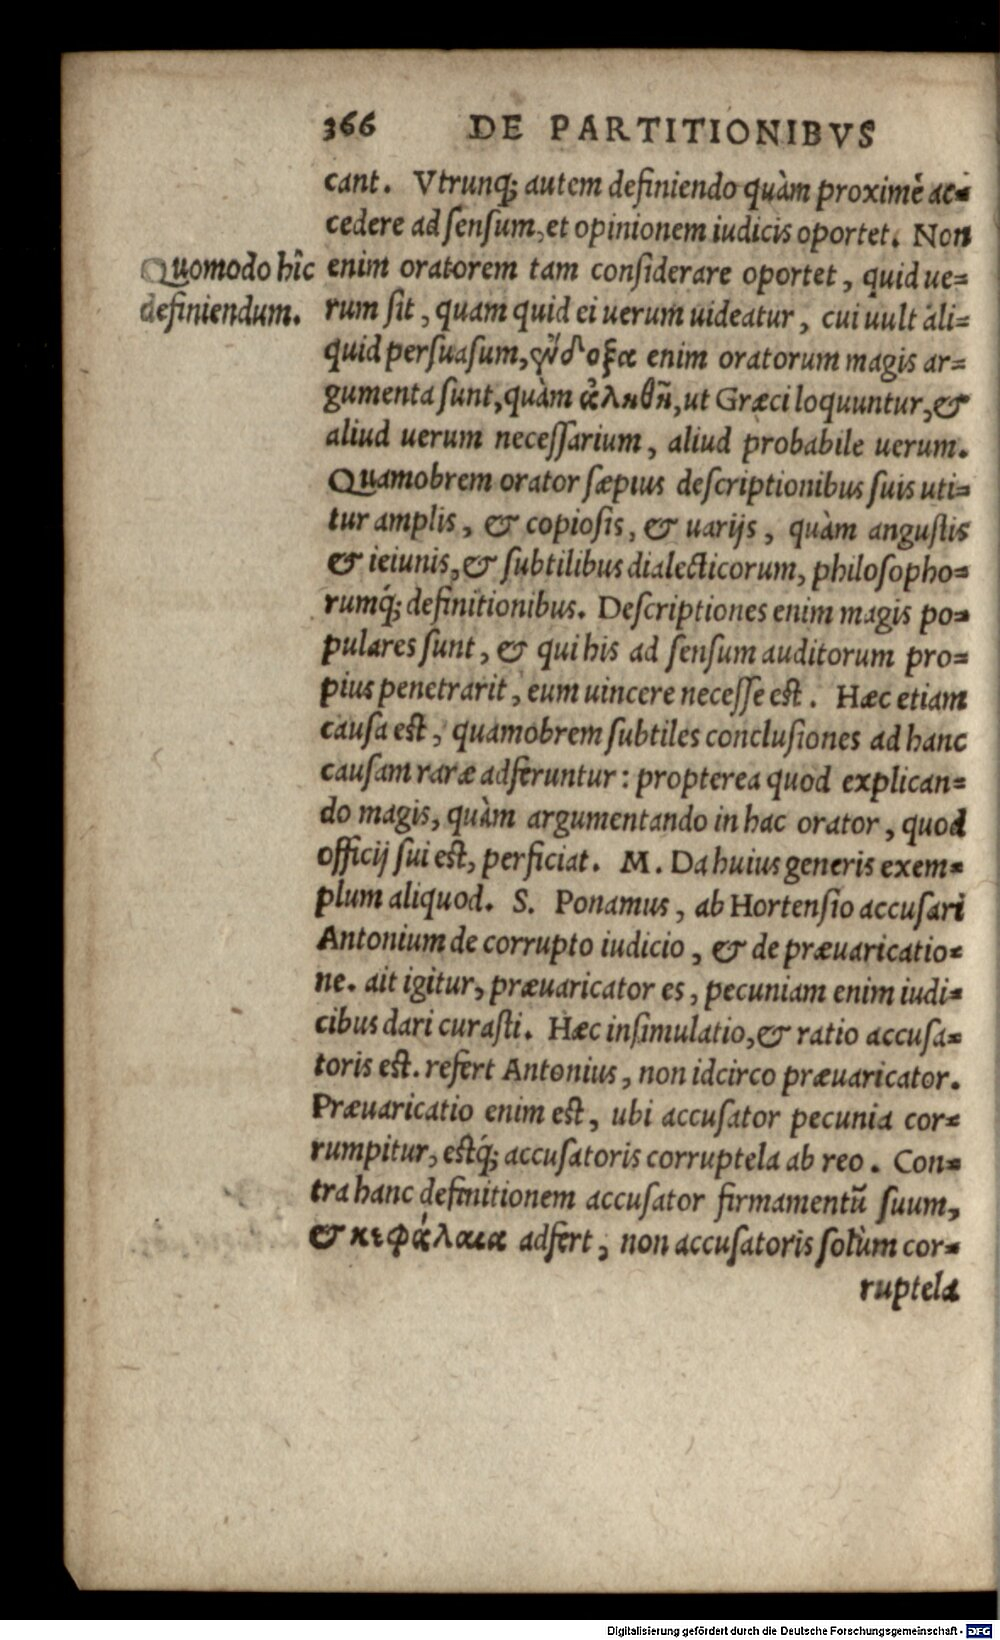 366 DE PARTITIONIBVS
cant. Vtrunq; autem definiendo quàm proximè ac-
cedere ad sensum, et opinionem iudicis oportet. Non
Quomodo hîc
definiendum.
enim oratorem tam considerare oportet, quid ue=
rum sit, quam quid ei uerum uideatur, cui uult ali=
quid persuasum, ἔνδοξα enim oratorum magis ar=
gumenta sunt, quàm ἀληθῆ, ut Græci loquuntur, &
aliud uerum necessarium, aliud probabile uerum.
Quamobrem orator sæpius descriptionibus suis uti=
tur amplis, & copiosis, & uarijs, quàm angustis
& ieiunis, & subtilibus dialecticorum, philosopho=
rumq́; definitionibus. Descriptiones enim magis po=
pulares sunt, & qui his ad sensum auditorum pro=
pius penetrarit, eum uincere necesse est. Hæc etiam
causa est, quamobrem subtiles conclusiones ad hanc
causam raræ adferuntur: propterea quod explican=
do magis, quàm argumentando in hac orator, quod
officij sui est, perficiat. M. Da huius generis exem=
plum aliquod. S. Ponamus, ab Hortensio accusari
Antonium de corrupto iudicio, & de præuaricatio=
ne. ait igitur, præuaricator es, pecuniam enim iudi=
cibus dari curasti. Hæc insimulatio, & ratio accusa=
toris est. refert Antonius, non idcirco præuaricator.
Præuaricatio enim est, ubi accusator pecunia cor=
rumpitur, estq́; accusatoris corruptela ab reo. Con=
tra hanc definitionem accusator firmamentū suum,
& κεφάλαια adfert, non accusatoris solùm cor=
ruptela
Digitalisierung gefördert durch die Deutsche Forschungsgemeinschaft - DFG